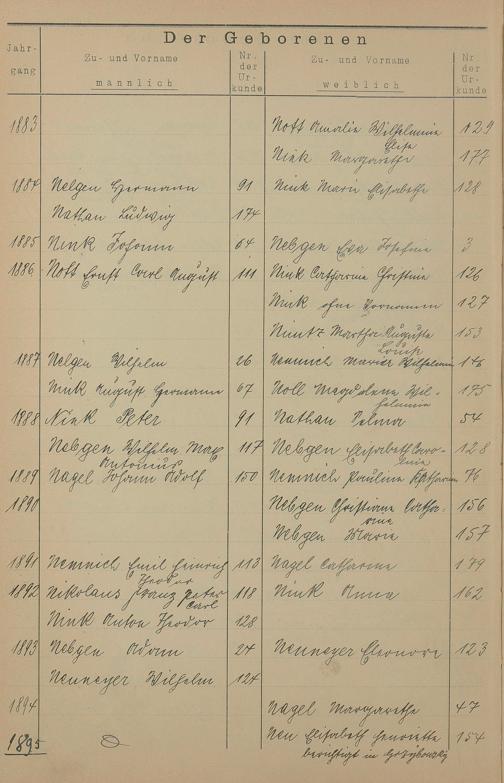 Der Geborenen
Jahrgang Zu- und Vorname männlich Nr. der Urkunde Zu- und Vorname weiblich Nr. der Urkunde
1883 Nott Amalie Wilhelmine Elise 129
Nink Margarethe 177
1884 Nelgen Hermann 91 Nink Marie Elisabethe 128
Nathan Ludwig 174
1885 Nink Johann 64 Nebgen Eva Josefine 3
1886 Nott Ernst Carl August 111 Nink Catharine Christine 126
Nink ohne Vornamen 127
Martha Auguste Louise 153
1887 Nelgen Wilhelm 26 Nennich Wilhelmine
Nink August Hermann 67 Noll Magdalene Wilhelmine 175
1888 Nink Peter 91 Nathan 54
Nebgen Wilhelm Max Antonius 117 Nebgen Elisabeth Caroline 128
1889 Nagel Johann Adolf 150 Nennich Pauline Katharina 76
1890 Nebgen Christiane Catharine 156
Nebgen Marie 157
1891 Nennich Emil Heinrich Theodor 113 Nagel Catharine 149
1892 Nikolaus Franz Peter Carl 118 Nink Anna 162
Nink Anton Theodor 128
1893 Nebgen Adam 24 Neumeyer Eleonore 123
Neumeyer Wilhelm 124
1894 Nagel Margarethe 47
1895 Neu Elisabeth Henriette 154
berichtigt in